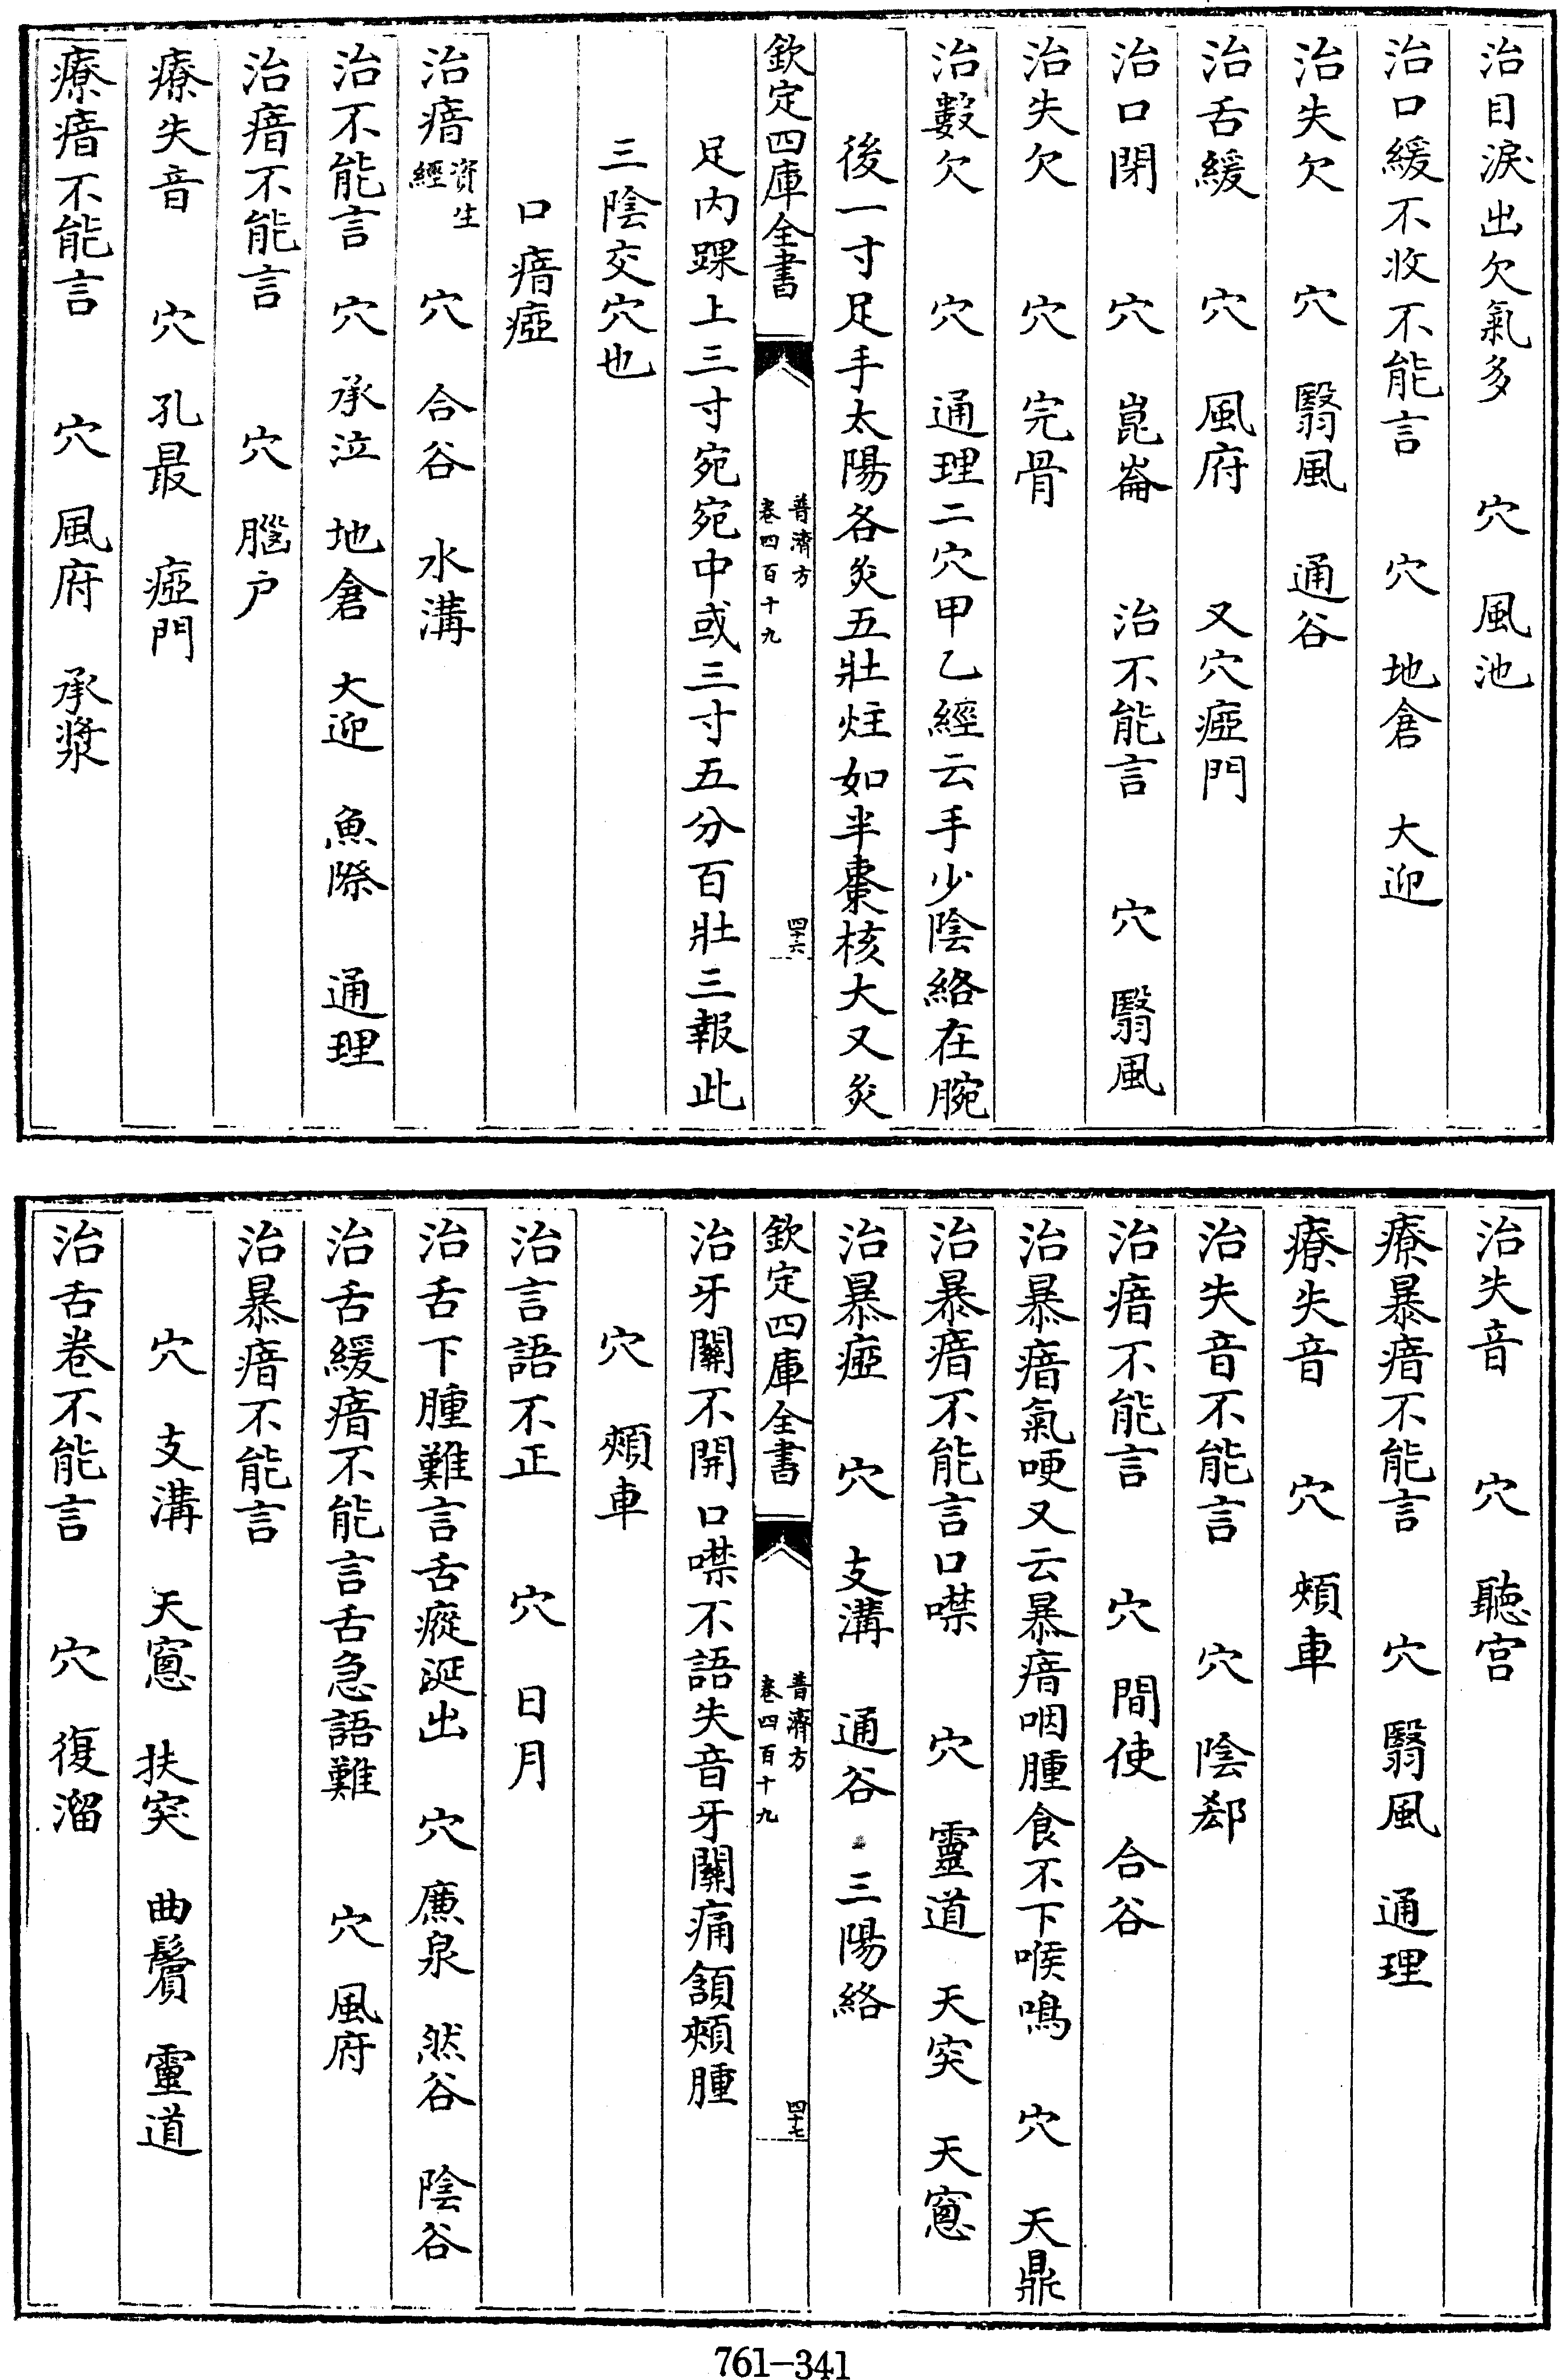 治目淚出欠氣多　穴　風池
治口緩不收不能言　穴　地倉　大迎
治失欠　穴　翳風　通谷
治舌緩　穴　風府　又穴瘂門
治口閉　穴　崑崙　治不能言　穴　翳風
治失欠　穴　完骨
治數欠　穴　通理二穴甲乙經云手少陰絡在腕
後一寸足手太陽各灸五壯炷如半棗核大又灸
欽定四庫全書　普濟方　卷四百十九　四十六
足内踝上三寸宛宛中或三寸五分百壯三報此
三陰交穴也
口瘖瘂
治瘖資生經　穴　合谷　水溝
治不能言　穴　承泣　地倉　大迎　魚際　通理
治瘖不能言　穴　腦户
療失音　穴　孔最　瘂門
療瘖不能言　穴　風府　承漿
治失音　穴　聽宫
療暴瘖不能言　穴　翳風　通理
療失音　穴　頰車
治失音不能言　穴　陰郄
治瘖不能言　穴　間使　合谷
治暴瘖氣哽又云暴瘖咽腫食不下喉鳴　穴　天鼎
治暴瘖不能言口噤　穴　靈道　天突　天窻
治暴瘂　穴　支溝　通谷　三陽絡
欽定四庫全書　普濟方　卷四百十九　四十七
治牙關不開口噤不語失音牙關痛頷頰腫
穴　頰車
治言語不正　穴　日月
治舌下腫難言舌瘲涎出　穴　廉泉　然谷　陰谷
治舌緩瘖不能言舌急語難　穴　風府
治暴瘖不能言
穴　支溝　天窻　扶突　曲鬢　靈道
治舌卷不能言　穴　復溜
761-341